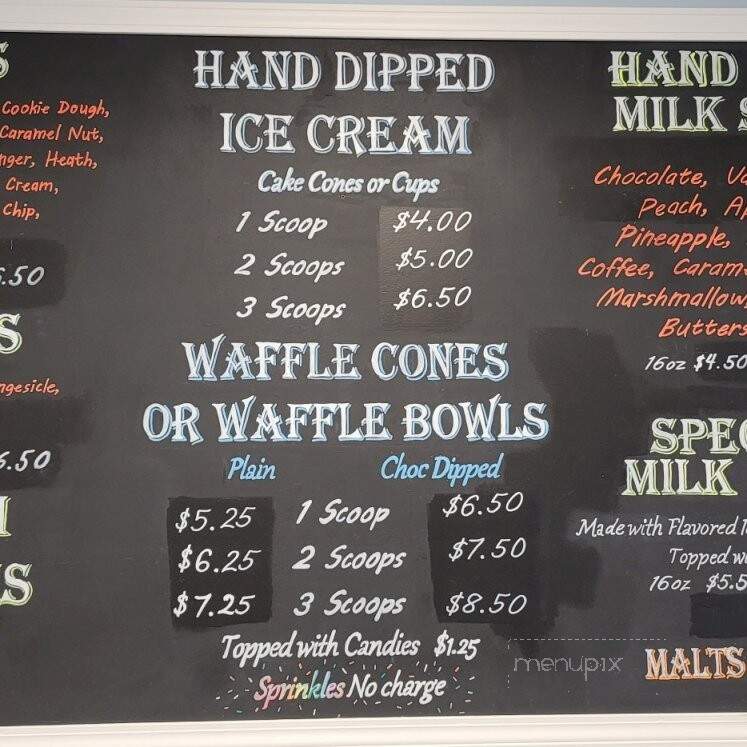 S
Cookie Dough,
Caramel Nut,
Heath,
Cream,
Chip,
.50
S
6.50
S
HAND DIPPED
ICE CREAM
Cake Cones or Cups
1 Scoop $4.00
2 Scoops $5.00
3 Scoops $6.50
WAFFLE CONES
OR WAFFLE BOWLS
Plain Choc Dipped
$5.25 1 Scoop $6.50
$6.25 2 Scoops $7.50
$7.25 3 Scoops $8.50
Topped with Candies $1.25
Sprinkles No charge
HAND
MILK S
Chocolate, Va
Peach, A
Pineapple,
Coffee, Carame
Marshmallow
Butters
16oz $4.50
SPEC
MILK
Made with Flavored
Topped w
16oz $5.5
MALTS
menupix